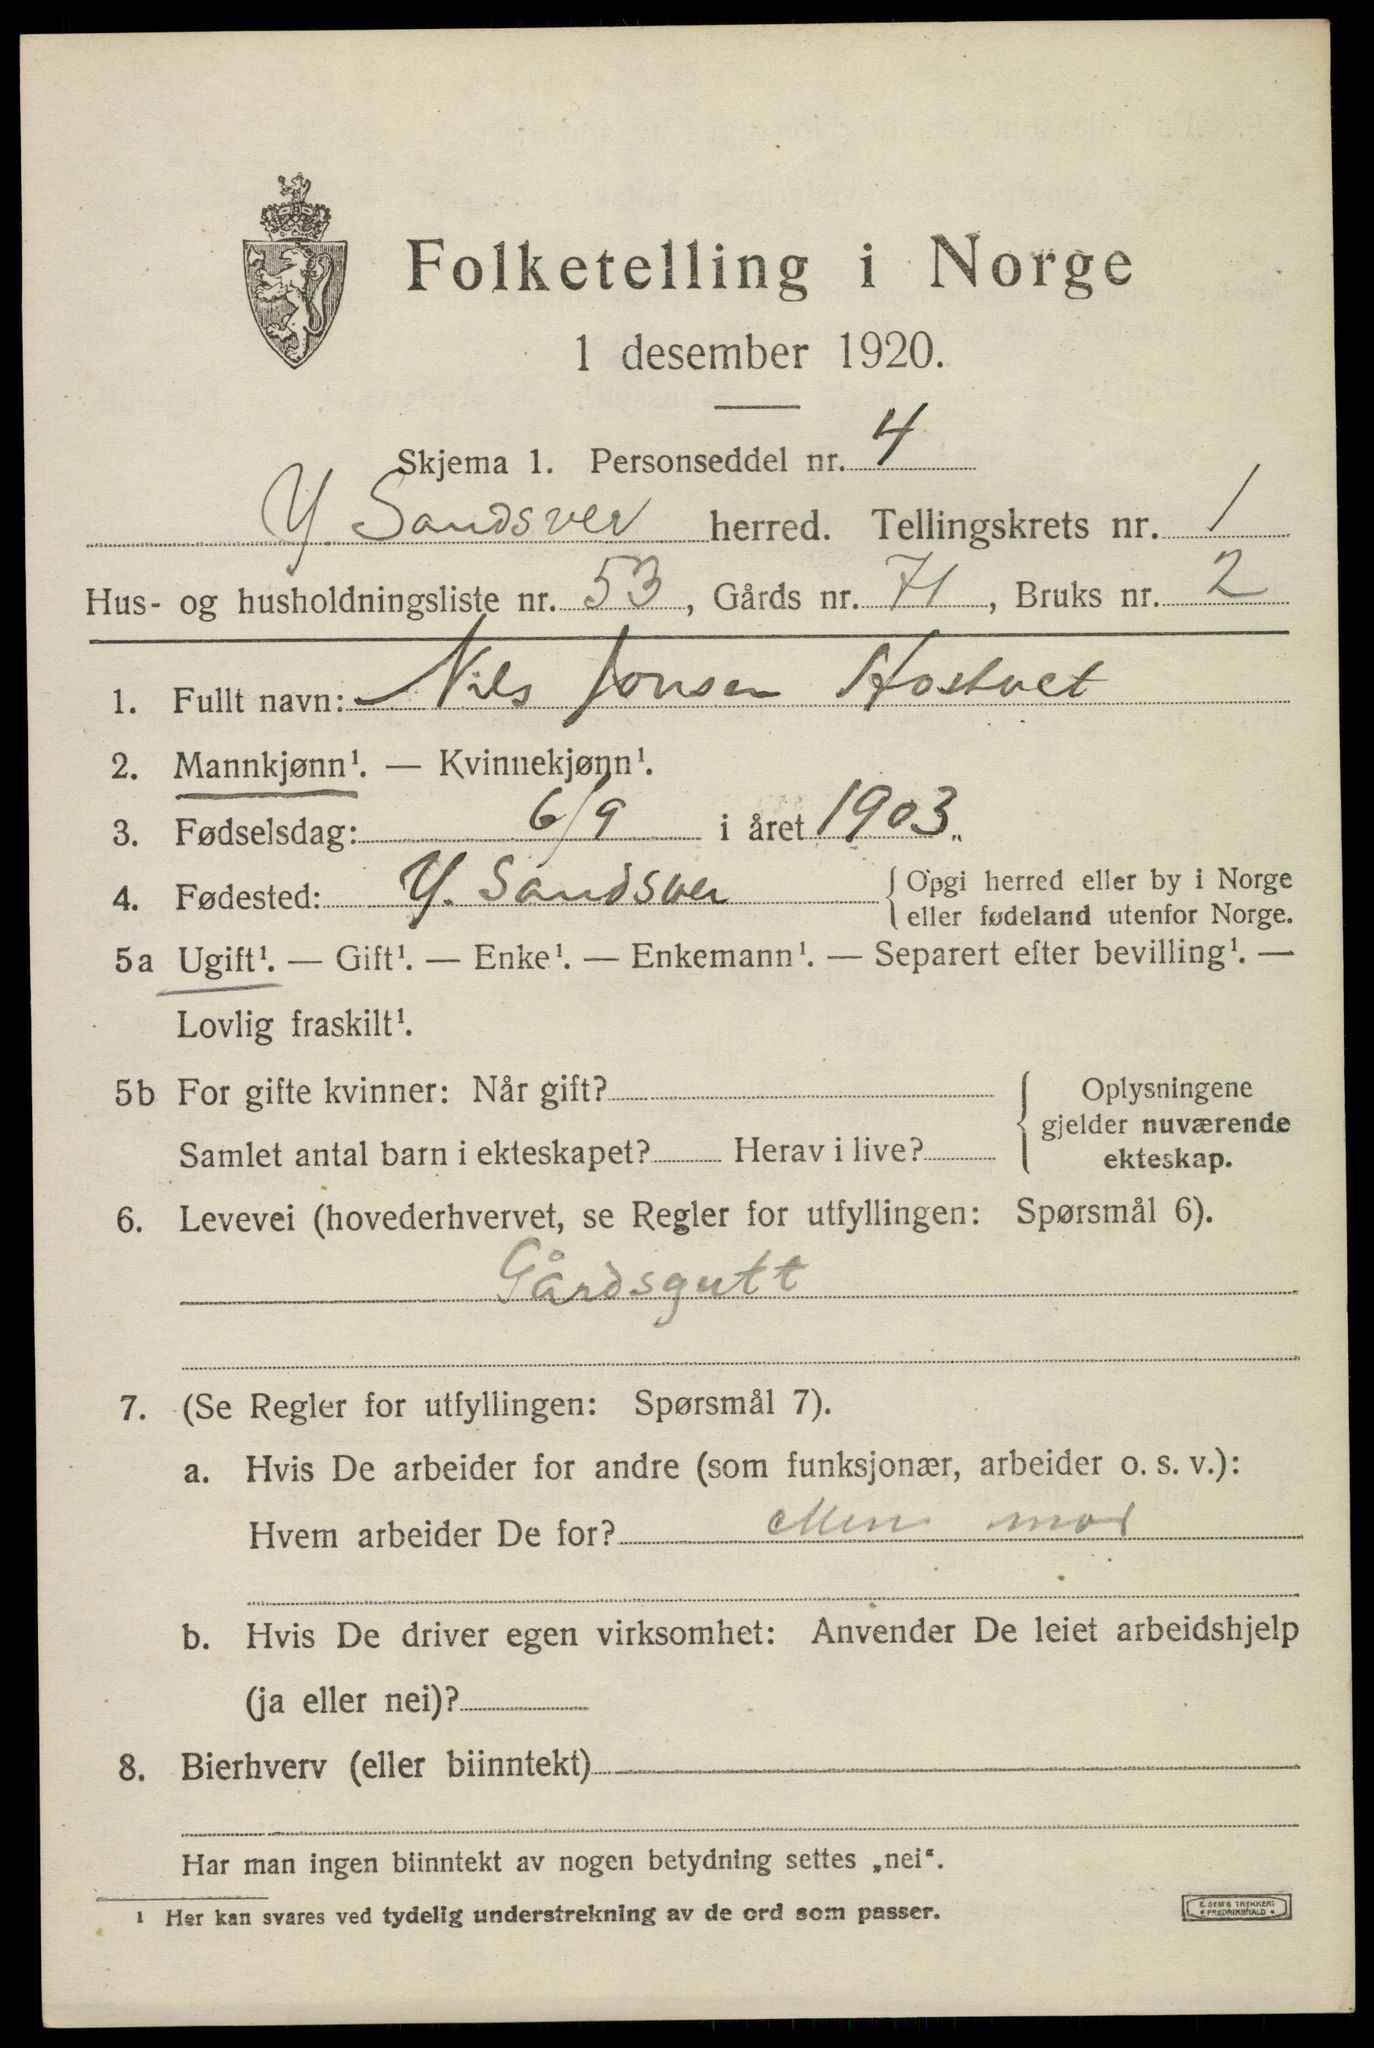 Folketelling i Norge
1 desember 1920.
Skjema 1. Personseddel nr. 4
Y. Sandsver herred. Tellingskrets nr. 1
Hus- og husholdningsliste nr. 53, Gårds nr. 71, Bruks nr. 2
1. Fullt navn: Nils Jonsen Hostvet
2. Mannkjønn¹. — Kvinnekjønn¹.
3. Fødselsdag: 6/9 i året 1903.
4. Fødested: Y. Sandsver { Opgi herred eller by i Norge
eller fødeland utenfor Norge.
5a Ugift¹. — Gift¹. — Enke¹. — Enkemann¹. — Separert efter bevilling¹. —
Lovlig fraskilt¹.
5b For gifte kvinner: Når gift?
Samlet antal barn i ekteskapet? Herav i live?
{ Oplysningene
gjelder nuværende
ekteskap.
6. Levevei (hovederhvervet, se Regler for utfyllingen: Spørsmål 6).
Gårdsgutt
7. (Se Regler for utfyllingen: Spørsmål 7).
a. Hvis De arbeider for andre (som funksjonær, arbeider o. s. v.):
Hvem arbeider De for? Min mor
b. Hvis De driver egen virksomhet: Anvender De leiet arbeidshjelp
(ja eller nei)?
8. Bierhverv (eller biinntekt)
Har man ingen biinntekt av nogen betydning settes „nei“.
¹ Her kan svares ved tydelig understrekning av de ord som passer.
E. SEM'S TRYKKERI
• FREDRIKSHALD •